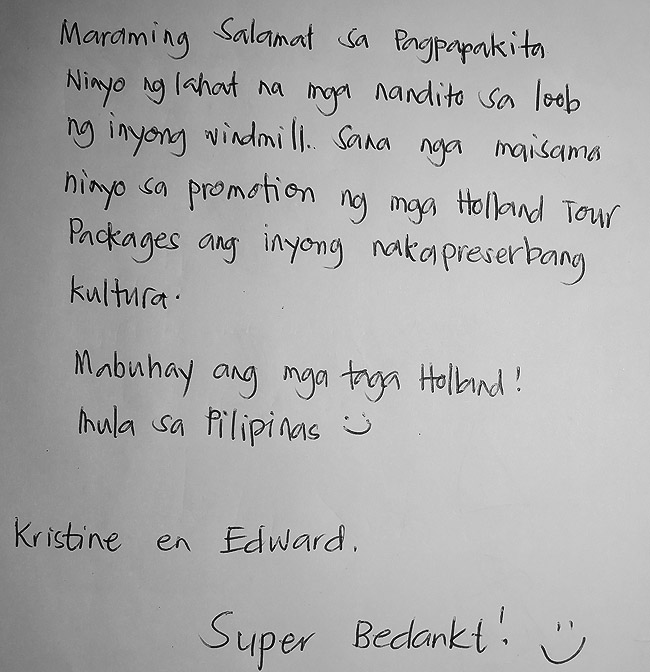 Maraming Salamat sa Pagpapakita
Ninyo ng lahat na mga nandito sa loob
ng inyong windmill.. Sana nga maisama
ninyo sa promotion ng mga Holland Tour
Packages ang inyong nakapreserbang
kultura.
Mabuhay ang mga taga Holland!
Mula sa Pilipinas :)
Kristine en Edward.
Super Bedankt! :)